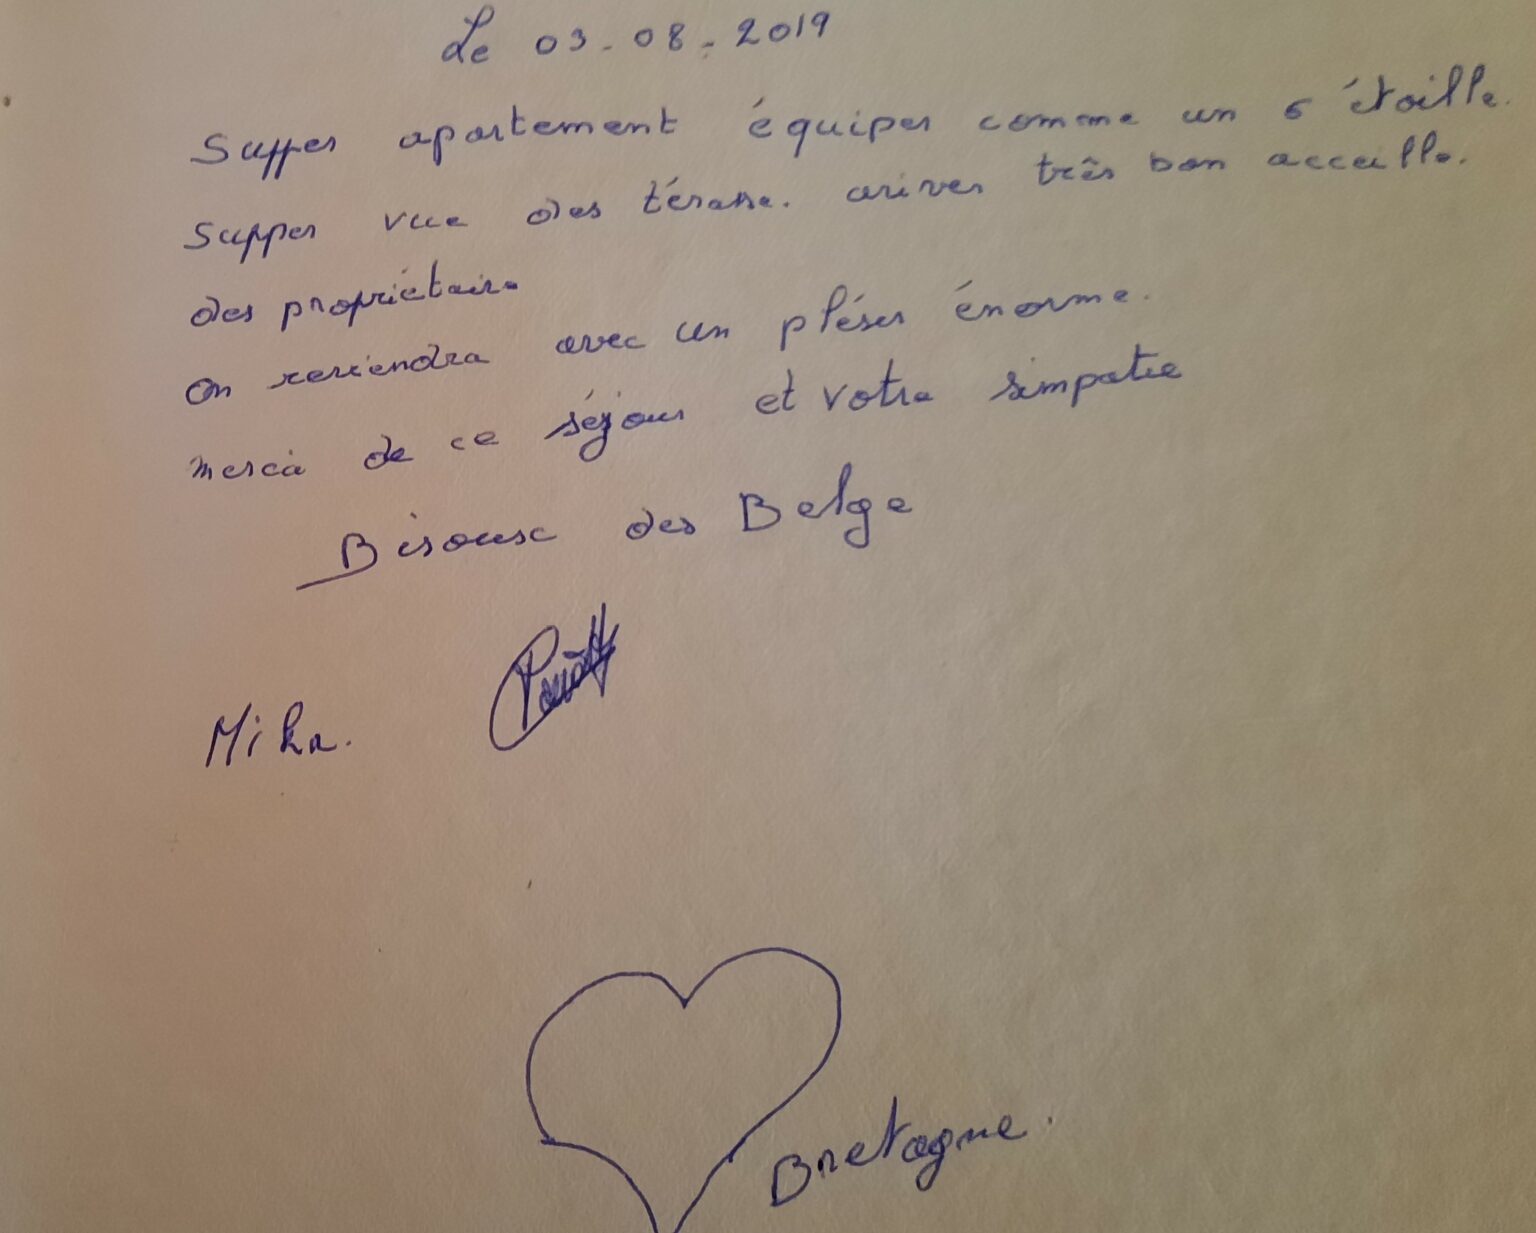 Le 03-08-2019
Supper apartement équiper comme un 5 étoille.
Supper vue des térasse. ariver très bon acceille.
des propriétaire
on reviendra avec un pléser énorme.
merci de ce séjour et votre simpatie
Bisousc des Belge
Mika.
Bretagne.